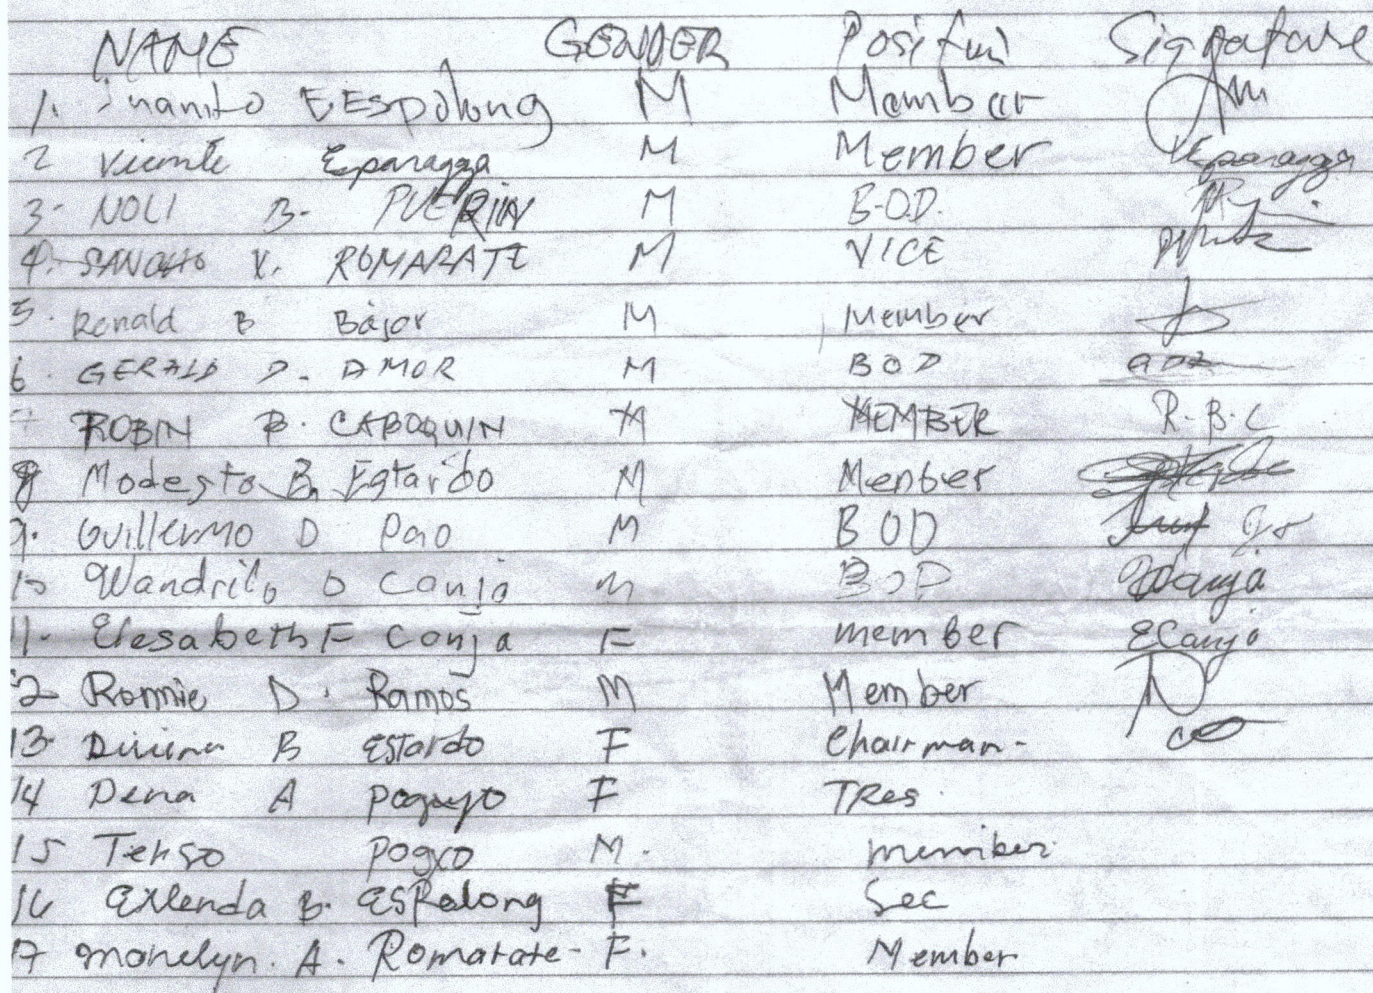 NAME GENDER Position Signature
1. Juanito E Espolong M Member
2 Vicente Eparagga M Member Eparagga
3. NOLI B. PUERIN M B.O.D.
4. SANCHO V. ROMARATE M VICE
5. Ronald B Bajor M Member
6. GERALD D. AMOR M BOD
7 ROBIN B. CABOQUIN M MEMBER R.B.C
8 Modesto B. Estardo M Menber
9. Guillermo D Pao M BOD
10 Wandrilo O Canja M BOD WCanja
11. Elesabeth F Canja F member ECanja
12 Ronnie D. Ramos M Member
13. Divina B Estardo F Chairman-
14 Dena A F TRes.
15 M. member
16 B. ESPalong F Sec
17 monelyn. A. Romarate- F. Member